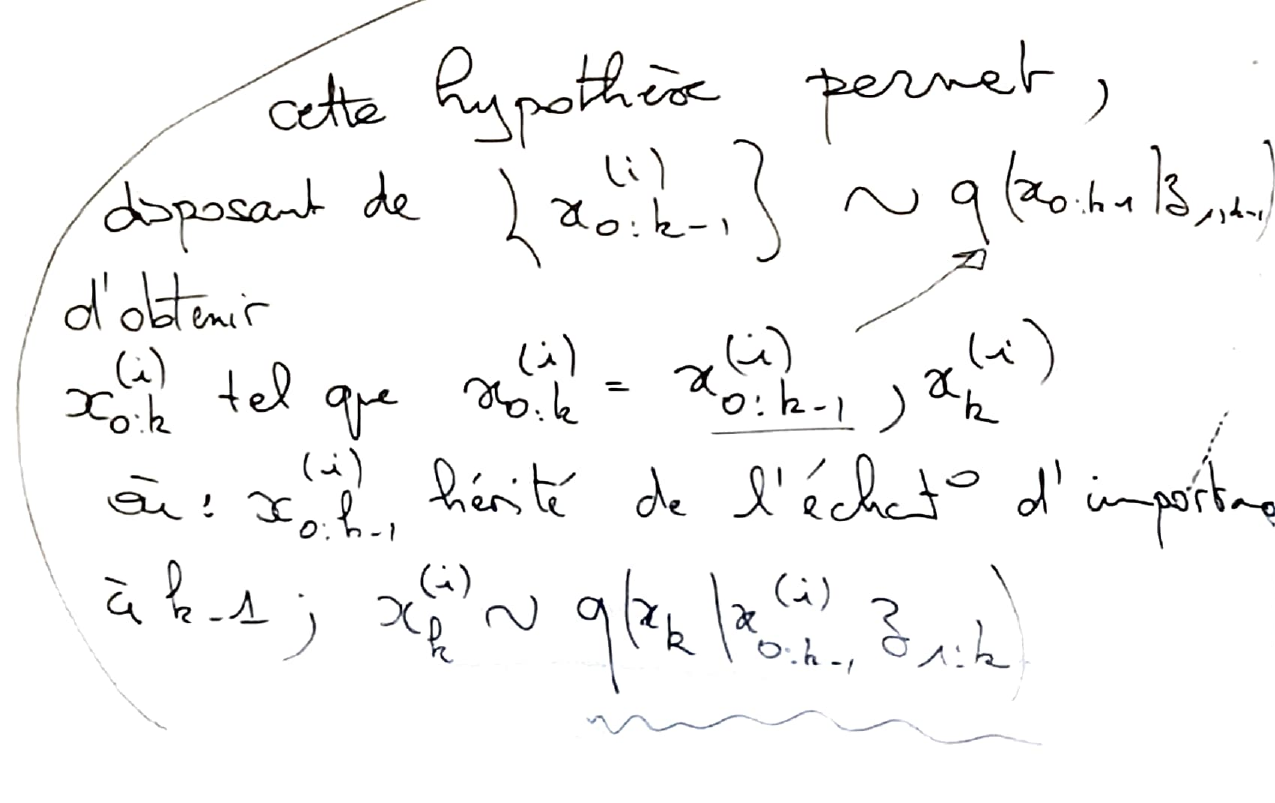 cette hypothèse permet,
disposant de { x_{0:k-1}^{(i)} } ~ q(x_{0:k-1} | z_{1:k-1})
d'obtenir
x_{0:k}^{(i)} tel que x_{0:k}^{(i)} = x_{0:k-1}^{(i)}, x_k^{(i)}
où : x_{0:k-1}^{(i)} hérité de l'échat° d'importance
à k-1 ; x_k^{(i)} ~ q(x_k | x_{0:k-1}^{(i)} z_{1:k})